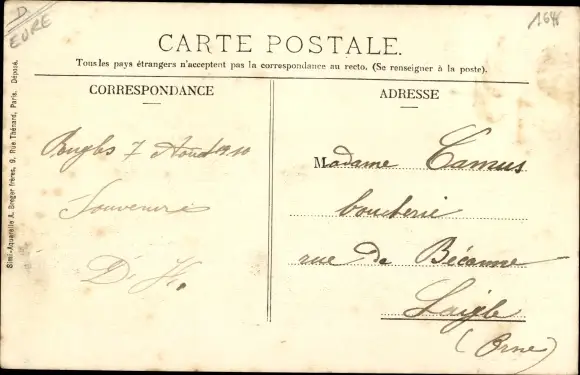 D
EURE
164
CARTE POSTALE.
Tous les pays étrangers n'acceptent pas la correspondance au recto. (Se renseigner à la poste).
CORRESPONDANCE
7 Aout 1910
Souvenirs
D. H.
ADRESSE
Madame Camus
boucherie
rue de Bécanne
Laigle
(Orne)
Simi-Aquarelle A. Breger frères, 9, Rue Thénard, Paris. Déposé.